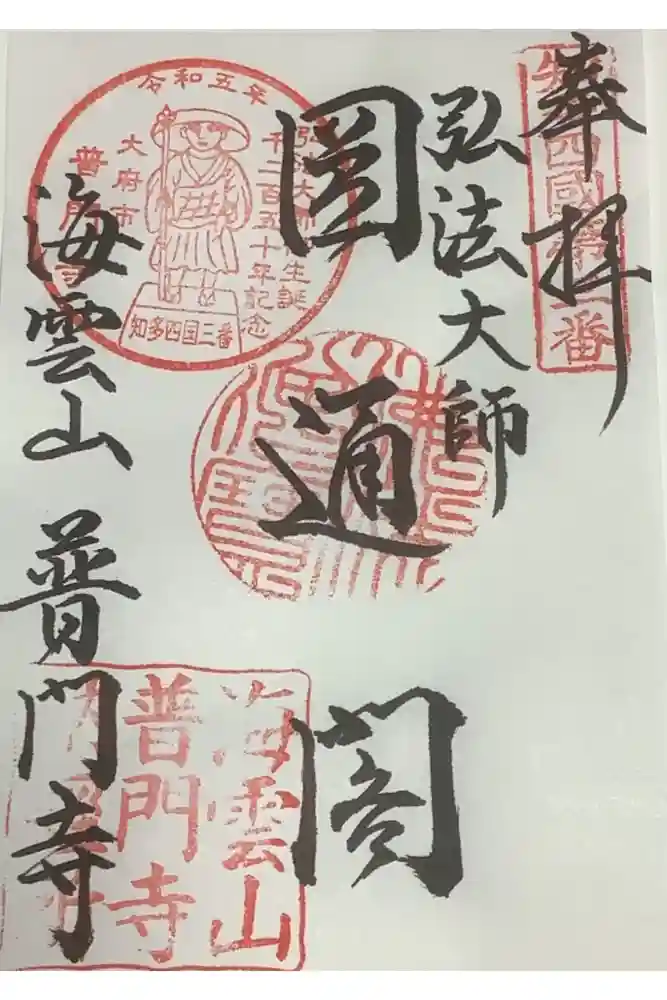 奉拝
知多四國第三番
弘法大師
圓通閣
海雲山 普門寺
令和五年
弘法大師御生誕
千二百五十年記念
大府市
普門寺
知多四国三番
海雲山
普門寺